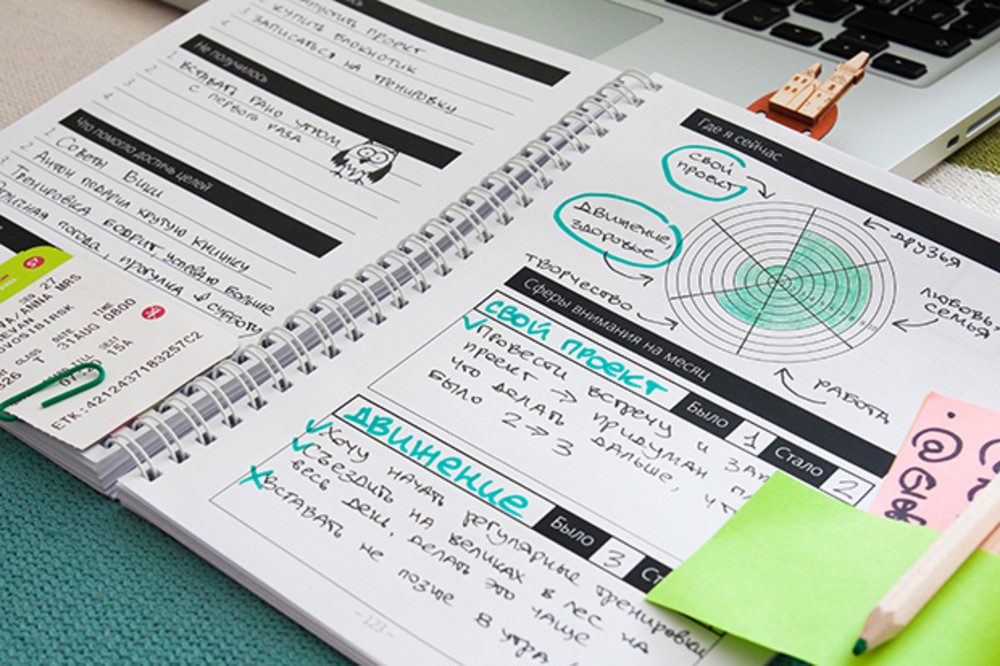 ЗАПУСТИТЬ ПРОЕКТ
КУПИТЬ БЛОКНОТИК
ЗАПИСАТЬСЯ НА ТРЕНИРОВКУ
Не получилось
1 ВСТАВАТЬ РАНО УТРОМ
2 С ПЕРВОГО РАЗА
3
4
Что помогло достичь целей
1 СОВЕТЫ ВИКИ
2 АНТОН ПОДАРИЛ КРУТУЮ КНИЖКУ
3 ТРЕНИРОВКА БОДРИТ, УСПЕВАЮ БОЛЬШЕ
ПОГОДА, ПРОГУЛКА В СУББОТУ
57
ANNA MRS
SEP 27
DATE TIME
31AUG 0800
CLASS
326 T
SEAT
15A
ETK:4212437183257C2
Где я сейчас
СВОЙ
ПРОЕКТ
ДВИЖЕНИЕ
ЗДОРОВЬЕ
ТВОРЧЕСТВО
ДРУЗЬЯ
ЛЮБОВЬ,
СЕМЬЯ
РАБОТА
Сферы внимания на месяц
СВОЙ ПРОЕКТ
Было 1 Стало 2
ПРОВЕСТИ ВСТРЕЧУ И
ПРОЕКТ → ПРИДУМАТЬ
ЧТО ДЕЛАТЬ ДАЛЬШЕ,
БЫЛО 2→3
ДВИЖЕНИЕ
Было 3 Ст
ХОЧУ НАЧАТЬ РЕГУЛЯРНЫЕ ТРЕНИРОВКИ
СЪЕЗДИТЬ НА ВЕЛИКАХ В ЛЕС НА
ВЕСЬ ДЕНЬ, ДЕЛАТЬ ЭТО ЧАЩЕ
ВСТАВАТЬ НЕ ПОЗЖЕ 8 УТРА
–123–